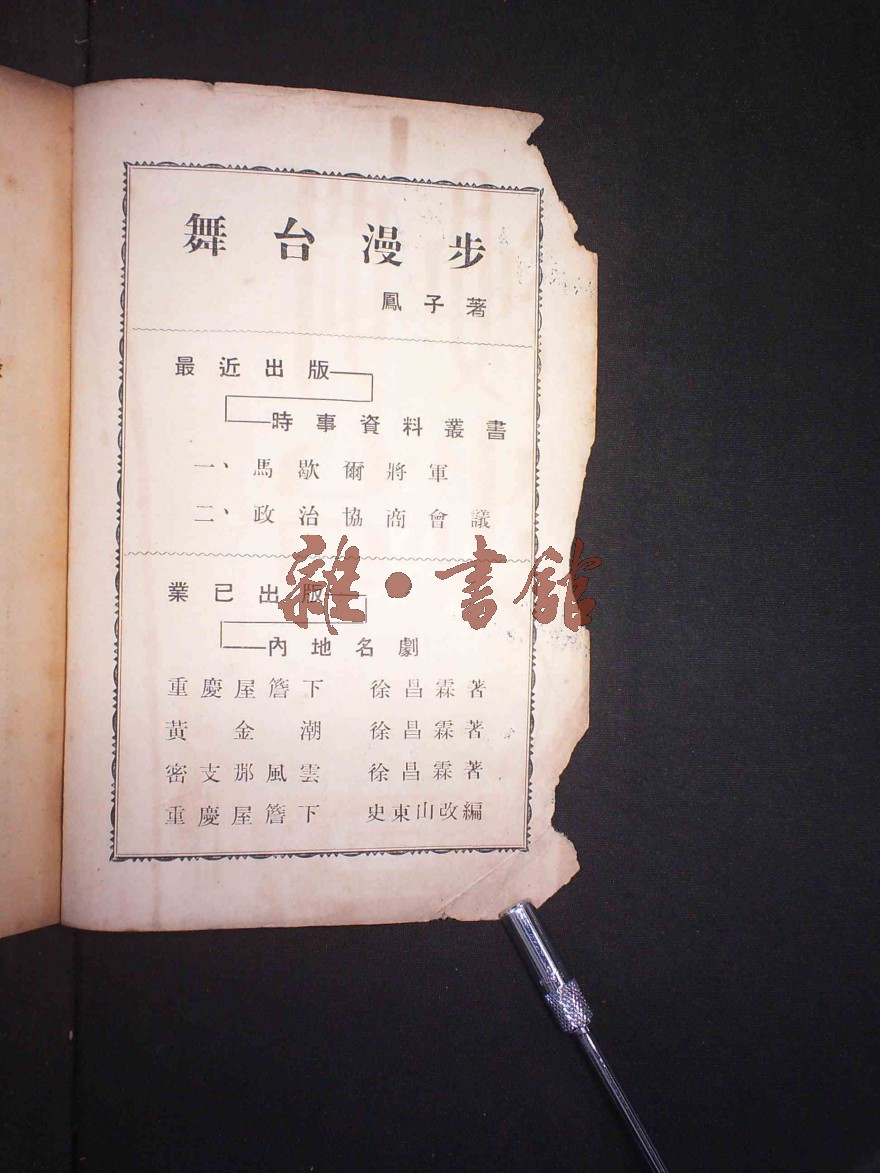 舞台漫步
鳳子著
最近出版
時事資料叢書
一、馬歇爾將軍
二、政治協商會議
雜·書館
業已出版
內地名劇
重慶屋簷下 徐昌霖著
黃金潮 徐昌霖著
密支那風雲 徐昌霖著
重慶屋簷下 史東山改編